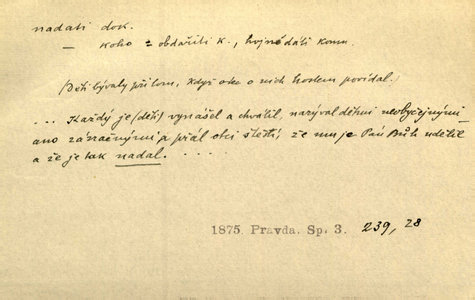 nadati dok.
— koho = obdařiti k., hojně dáti komu
(Děti bývaly při tom, když otec o nich hostem povídal.)
... Každý je (děti) vynášel a chválil, nazýval dětmi neobyčejnými
ano zázračnými a přál otci štěstí, že mu je Pán Bůh udělil
a že je tak nadal. ...
1875. Pravda. Sp. 3. 239, 28